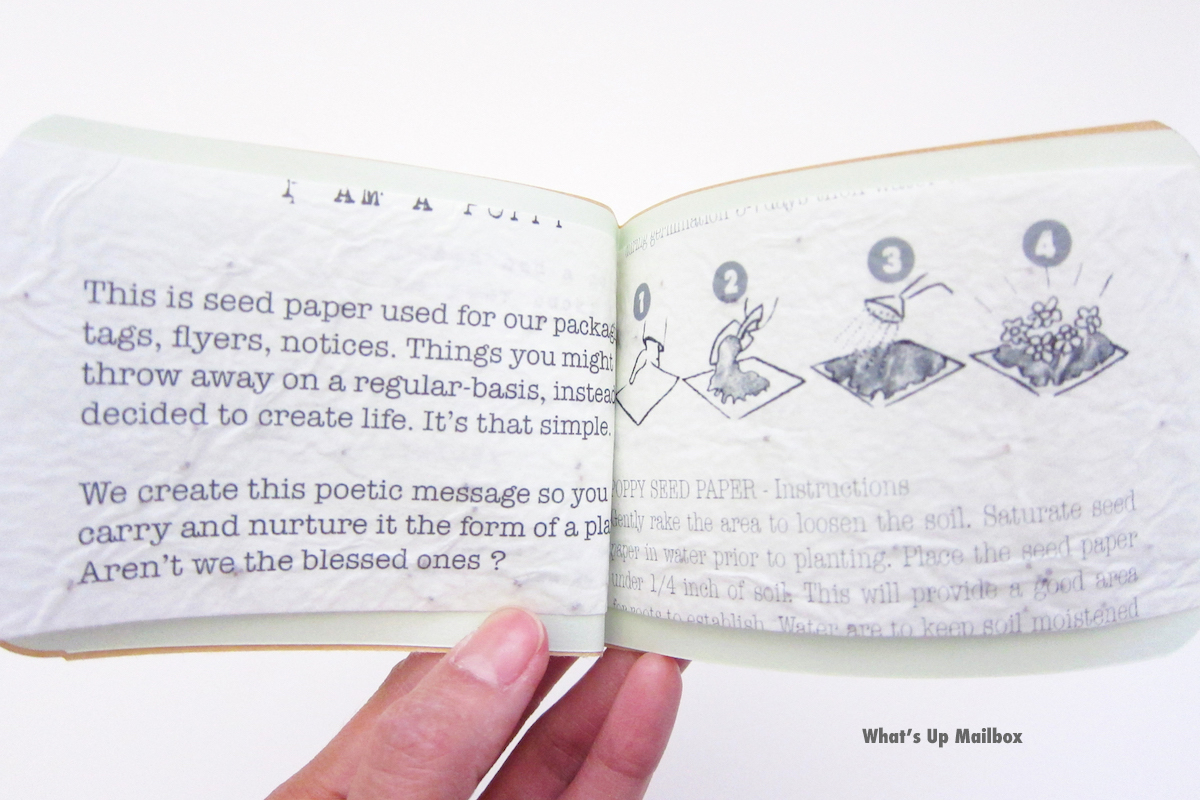 I AM A POPPY
This is seed paper used for our packag
tags, flyers, notices. Things you might
throw away on a regular-basis, instead
decided to create life. It's that simple.
We create this poetic message so you
carry and nurture it the form of a pla
Aren't we the blessed ones ?
during germination 3-7 days then
1
2
3
4
POPPY SEED PAPER - Instructions
Gently rake the area to loosen the soil. Saturate seed
paper in water prior to planting. Place the seed paper
under 1/4 inch of soil. This will provide a good area
for roots to establish. Water are to keep soil moistened
What's Up Mailbox